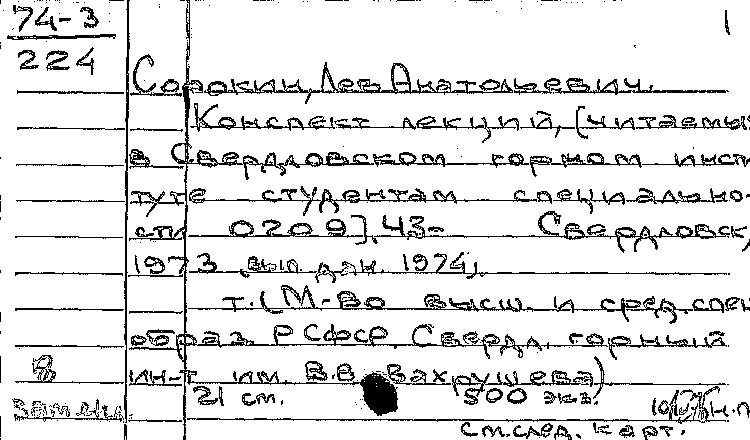 74-3
1
224
Сорокин, Лев Анатольевич.
Конспект лекций, [читаемый
в Свердловском горном инсти
туте студентам специально-
сти 0209]. Ч3- Свердловск,
1973 вып. дан. 1974).
т. (М-во высш. и сред. спец
образ. РСФСР. Свердл. горный
ин-т им. В.В. Вахрушева).
21 см. 500 экз.
н.п
См. след. карт.